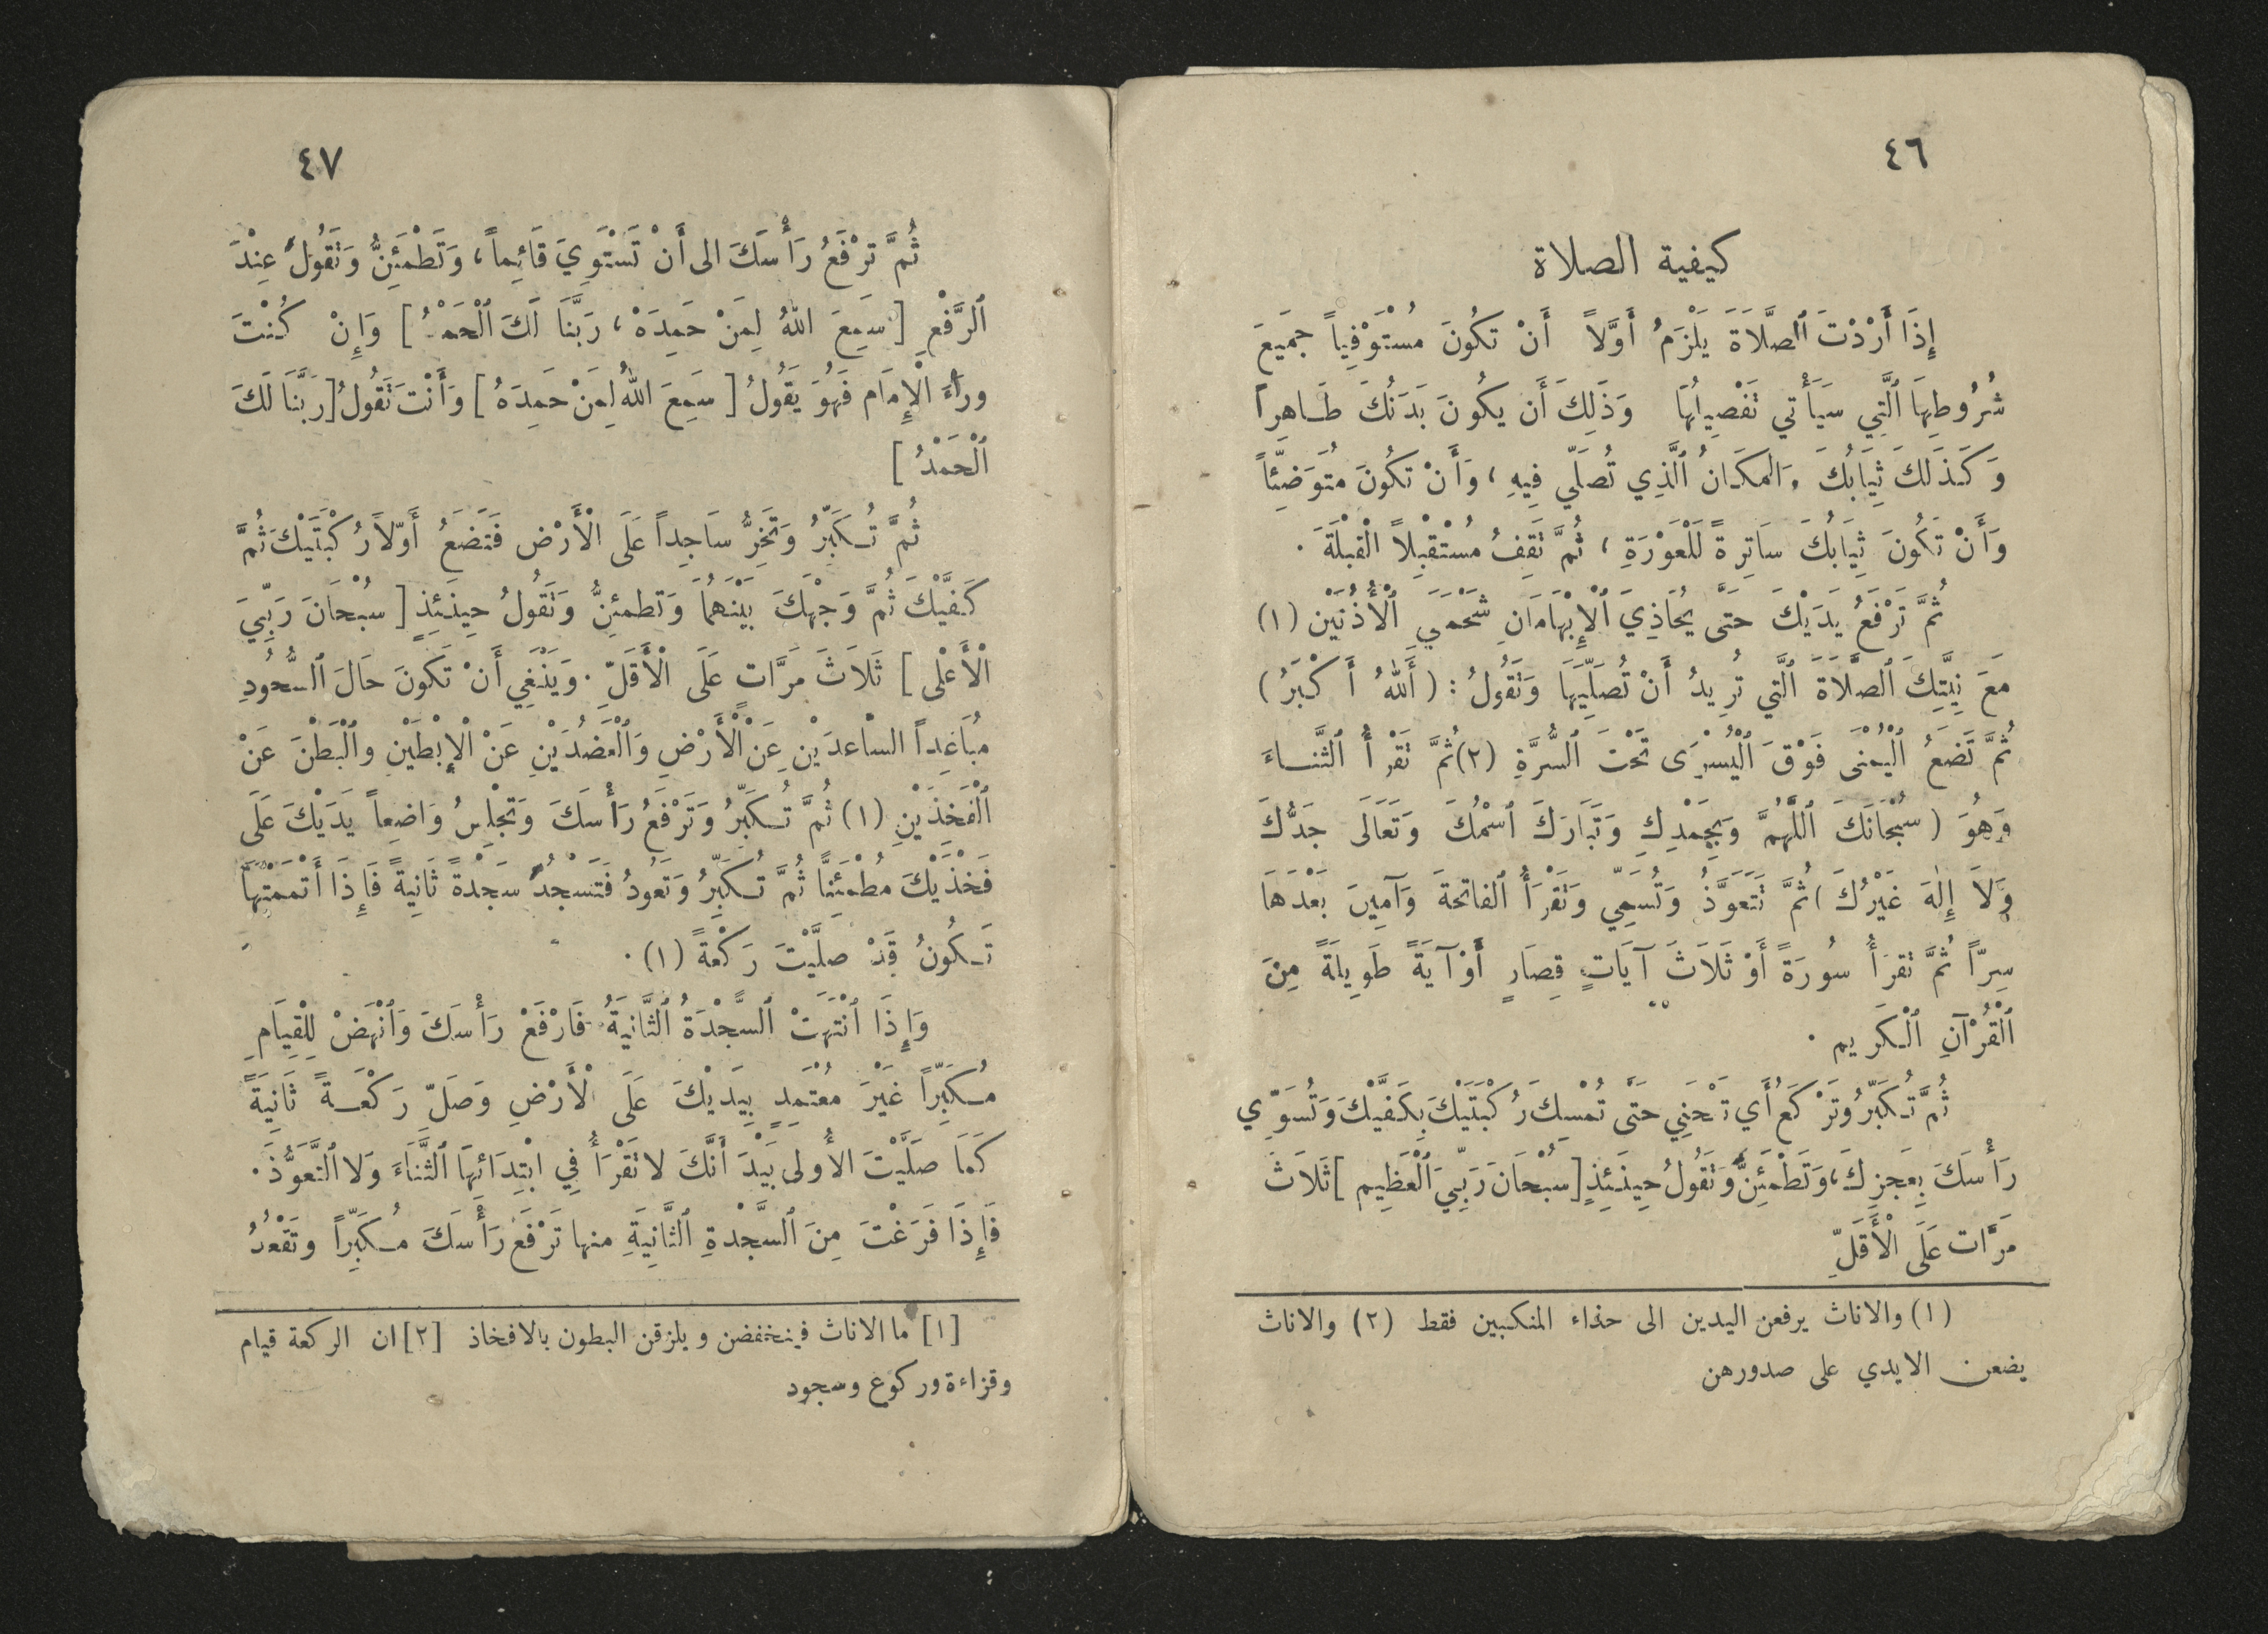 ٤٦
كيفية الصلاة
إِذَا أَرَدْتَ ٱلصَّلَاةَ يَلْزَمُ أَوَّلاً أَنْ تَكُونَ مُسْتَوْفِياً جَمِيعَ
شُرُوطِهَا ٱلَّتِي سَيَأْتِي تَفْصِيلُهَا وَذَلِكَ أَن يَكُونَ بَدَنُكَ طَاهِراً
وَكَذَلكَ ثِيَابُكَ وَالمَكَانُ ٱلَّذِي تُصَلِّي فِيهِ ، وَأَنْ تَكُونَ مُتَوَضِّئاً
وَأَنْ تَكُونَ ثِيَابُكَ سَاتِرةً لَلْعَوْرَةِ ، ثُمَّ تَقِفُ مُسْتَقْبِلاً الْقبْلَةَ .
ثُمَّ تَرْفَعُ يَدَيْكَ حَتَّى يُحَاذِيَ ٱلْإِبْهَامَانِ شَحْمَتَيِ ٱلْأُذُنَيْن (١)
مَعَ نِيَّتِكَ ٱلصَّلَاةَ ٱلَّتِي تُرِيدُ أَنْ تُصَلِّيَهَا وَتَقُولُ : ( أَللهُ أَكْبَرُ )
ثُمَّ تَضَعُ ٱلْيُمْنَى فَوْقَ ٱلْيُسْرَى تَحْتَ ٱلسُّرَّةِ (٢) ثُمَّ تَقْرَأُ ٱلثَّنَاءَ
وَهُوَ ( سُبْحَانَكَ ٱللَّهُمَّ وَبِحَمْدِكِ وَتَبَارَكَ ٱسْمُكَ وَتَعَالَى جَدُّكَ
وَلاَ إِلٰهَ غَيْرُكَ ) ثُمَّ تَتَعَوَّذُ وَتُسَمِّي وَتَقْرَأُ ٱلفَاتحَةَ وَآمِينَ بَعْدَهَا
سِرّاً ثُمَّ تَقرَأُ سُورَةً أَوْ ثَلَاثَ آيَاتٍ قِصَارٍ أَوْ آيَةً طَوِيلَةً مِنَ
ٱلْقُرْآنِ ٱلْكَرِيم .
ثُمَّ تُكَبِّرُ وَتَرْكَعُ أَي تَحْنِي حَتَّى تُمْسِكَ رُكْبَتَيْكَ بِكَفَّيْكَ وَتُسَوِّي
رَأْسَكَ بِعَجِزِكَ ، وَتَطْمَئِنُّ وَتَقُولُ حِينَئِذٍ [ سُبْحَانَ رَبِّيَ ٱلْعَظِيم ] ثَلَاثَ
مَرَّات عَلَى الْأَقَلِّ
(١) والاناث يرفعن اليدين الى حذاء المنكبين فقط (٢) والاناث
يضعن الايدي على صدورهن
٤٧
ثُمَّ تَرْفَعُ رَأْسَكَ الى أَنْ تَسْتَوِيَ قَائِماً ، وَتَطْمَئِنُّ وَتَقُولُ عِنْدَ
ٱلرَّفْعِ [ سَمِعَ اللهُ لِمَنْ حَمِدَهْ ، رَبَّنَا لَكَ ٱلْحَمْدُ ] وَإِنْ كُنْتَ
ورَاءَ الْإِمَام فَهُوَ يَقُولُ [ سَمِعَ اللهُ لِمَنْ حَمِدَهُ ] وَأَنْتَ تَقُولُ [ رَبَّنَا لَكَ
ٱلْحَمْدُ ]
ثُمَّ تُكَبِّرُ وَتَخِرُّ سَاجِداً عَلَى الْأَرْض فَتَضَعُ أَوّلاً رُكْبَتَيْكَ ثُمَّ
كَفَّيْكَ ثُمَّ وَجْهَكَ بَيْنَهُمَا وَتَطمئِنُّ وَتَقُولُ حِينَئِذٍ [ سُبْحَانَ رَبِّيَ
الْأَعْلى ] ثَلَاثَ مَرَّاتٍ عَلَى الْأَقَلِّ . وَيَنْبَغِي أَنْ تَكُونَ حَالَ ٱلسُّجُودِ
مُبَاعِداً السَّاعدَيْنِ عَنْ الْأَرْضِ وَٱلْعَضُدَيْنِ عَنْ الْإِبْطَيْنِ وٱلْبَطْنَ عَنْ
ٱلْفَخِذَيْنِ (١) ثُمَّ تُكَبِّرُ وَتَرْفَعُ رَأْسَكَ وَتَجْلِسُ وَاضِعاً يَدَيْكَ عَلَى
فَخْذَيْكَ مُطْمَئِنّاً ثُمَّ تُكَبِّرُ وَتَعُودُ فَتَسْجُدُ سَجْدَةً ثَانِيَةً فَإِذَا أَتْمَمْتَهَا
تَكُونُ قَدْ صَلَّيْتَ رَكْعَةً (١) .
وَإِذَا ٱنْتَهَتْ ٱلسَّجْدَةُ ٱلثَّانِيَةُ فَارْفَعْ رَأْسَكَ وَٱنْهَضْ لِلْقِيَامِ
مُكَبِّراً غَيْرَ مُعْتَمِدٍ بِيَدَيْكَ عَلَى الْأَرْضِ وَصَلِّ رَكْعَةً ثَانِيَةً
كَمَا صَلَّيْتَ الأُولى بَيْدَ أَنَّكَ لا تَقْرَأُ فِي ابْتِدَائِهَا ٱلثَّنَاءَ وَلا ٱلتَّعَوُّذَ .
فَإِذَا فَرَغْتَ مِنَ ٱلسَّجْدةِ ٱلثَّانِيَةِ منها تَرْفَعَ رَأْسَكَ مُكَبِّراً وَتَقْعُدُ
[١] ما الاناث فينخفضن ويلزقن البطون بالافخاذ [٢] ان الركعة قيام
وقراءة وركوع وسجود